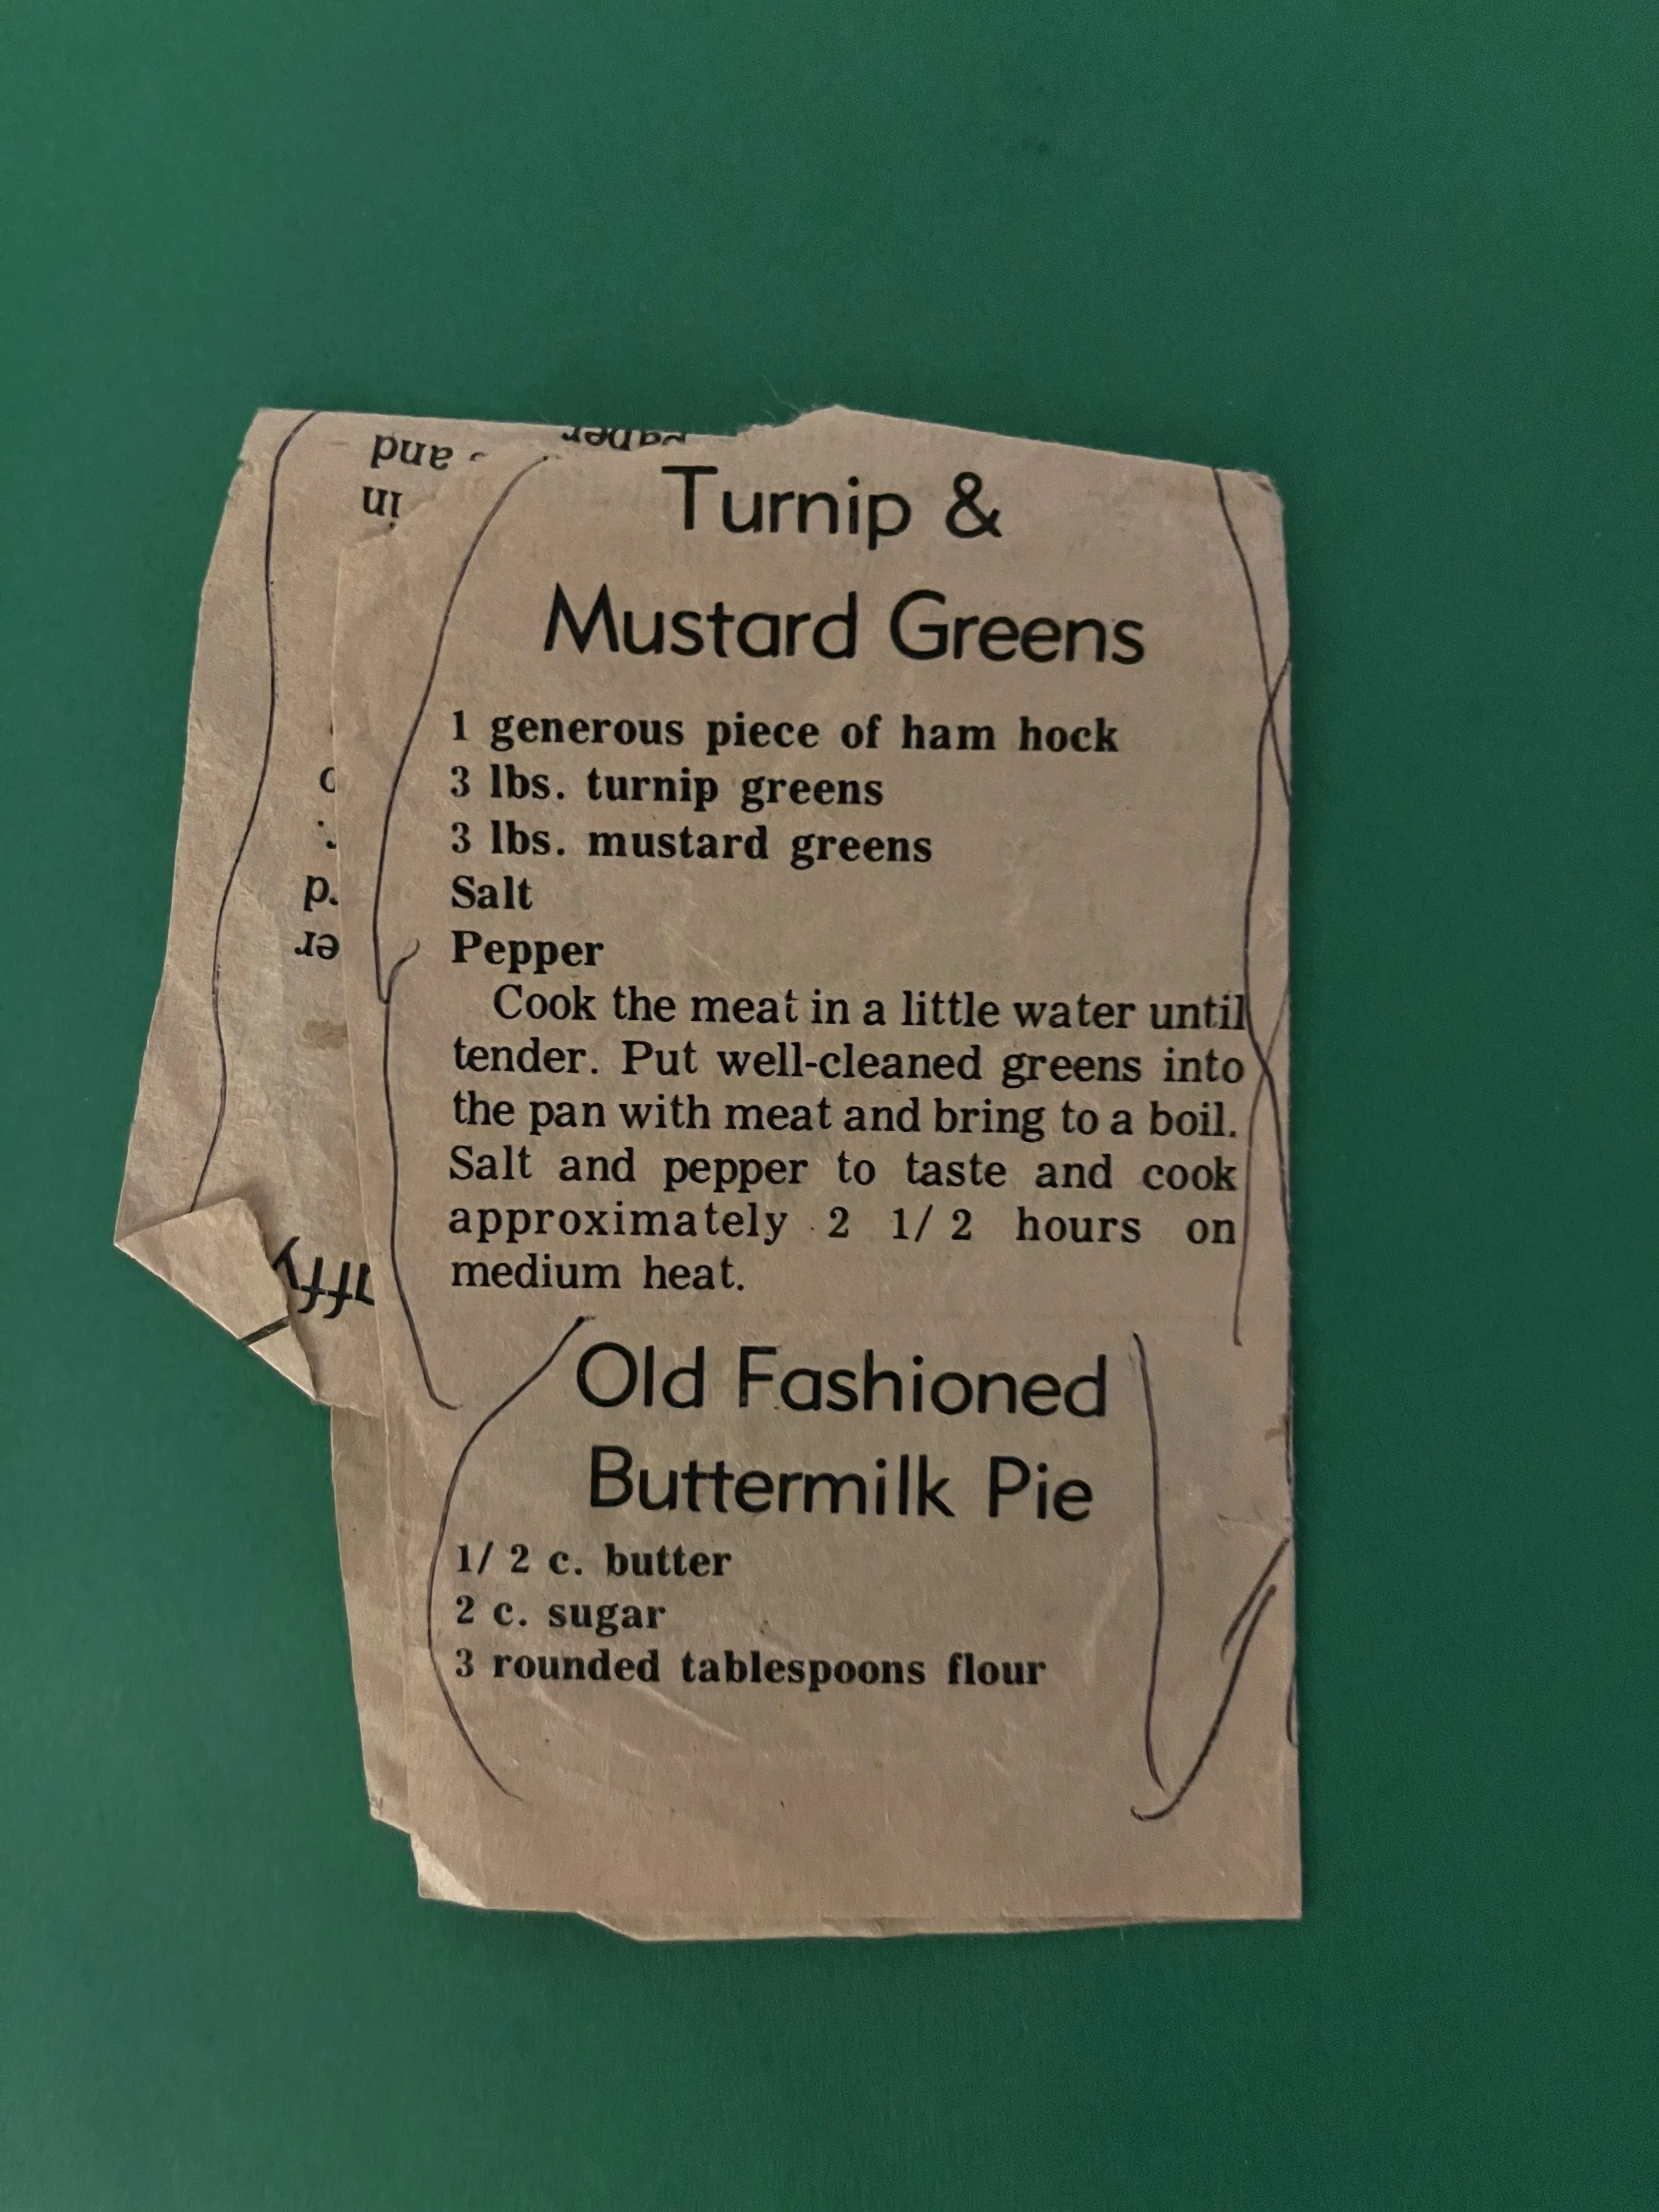 and
in
Turnip &
Mustard Greens
1 generous piece of ham hock
3 lbs. turnip greens
3 lbs. mustard greens
Salt
Pepper
Cook the meat in a little water until
tender. Put well-cleaned greens into
the pan with meat and bring to a boil.
Salt and pepper to taste and cook
approximately 2 1/2 hours on
medium heat.
Old Fashioned
Buttermilk Pie
1/2 c. butter
2 c. sugar
3 rounded tablespoons flour